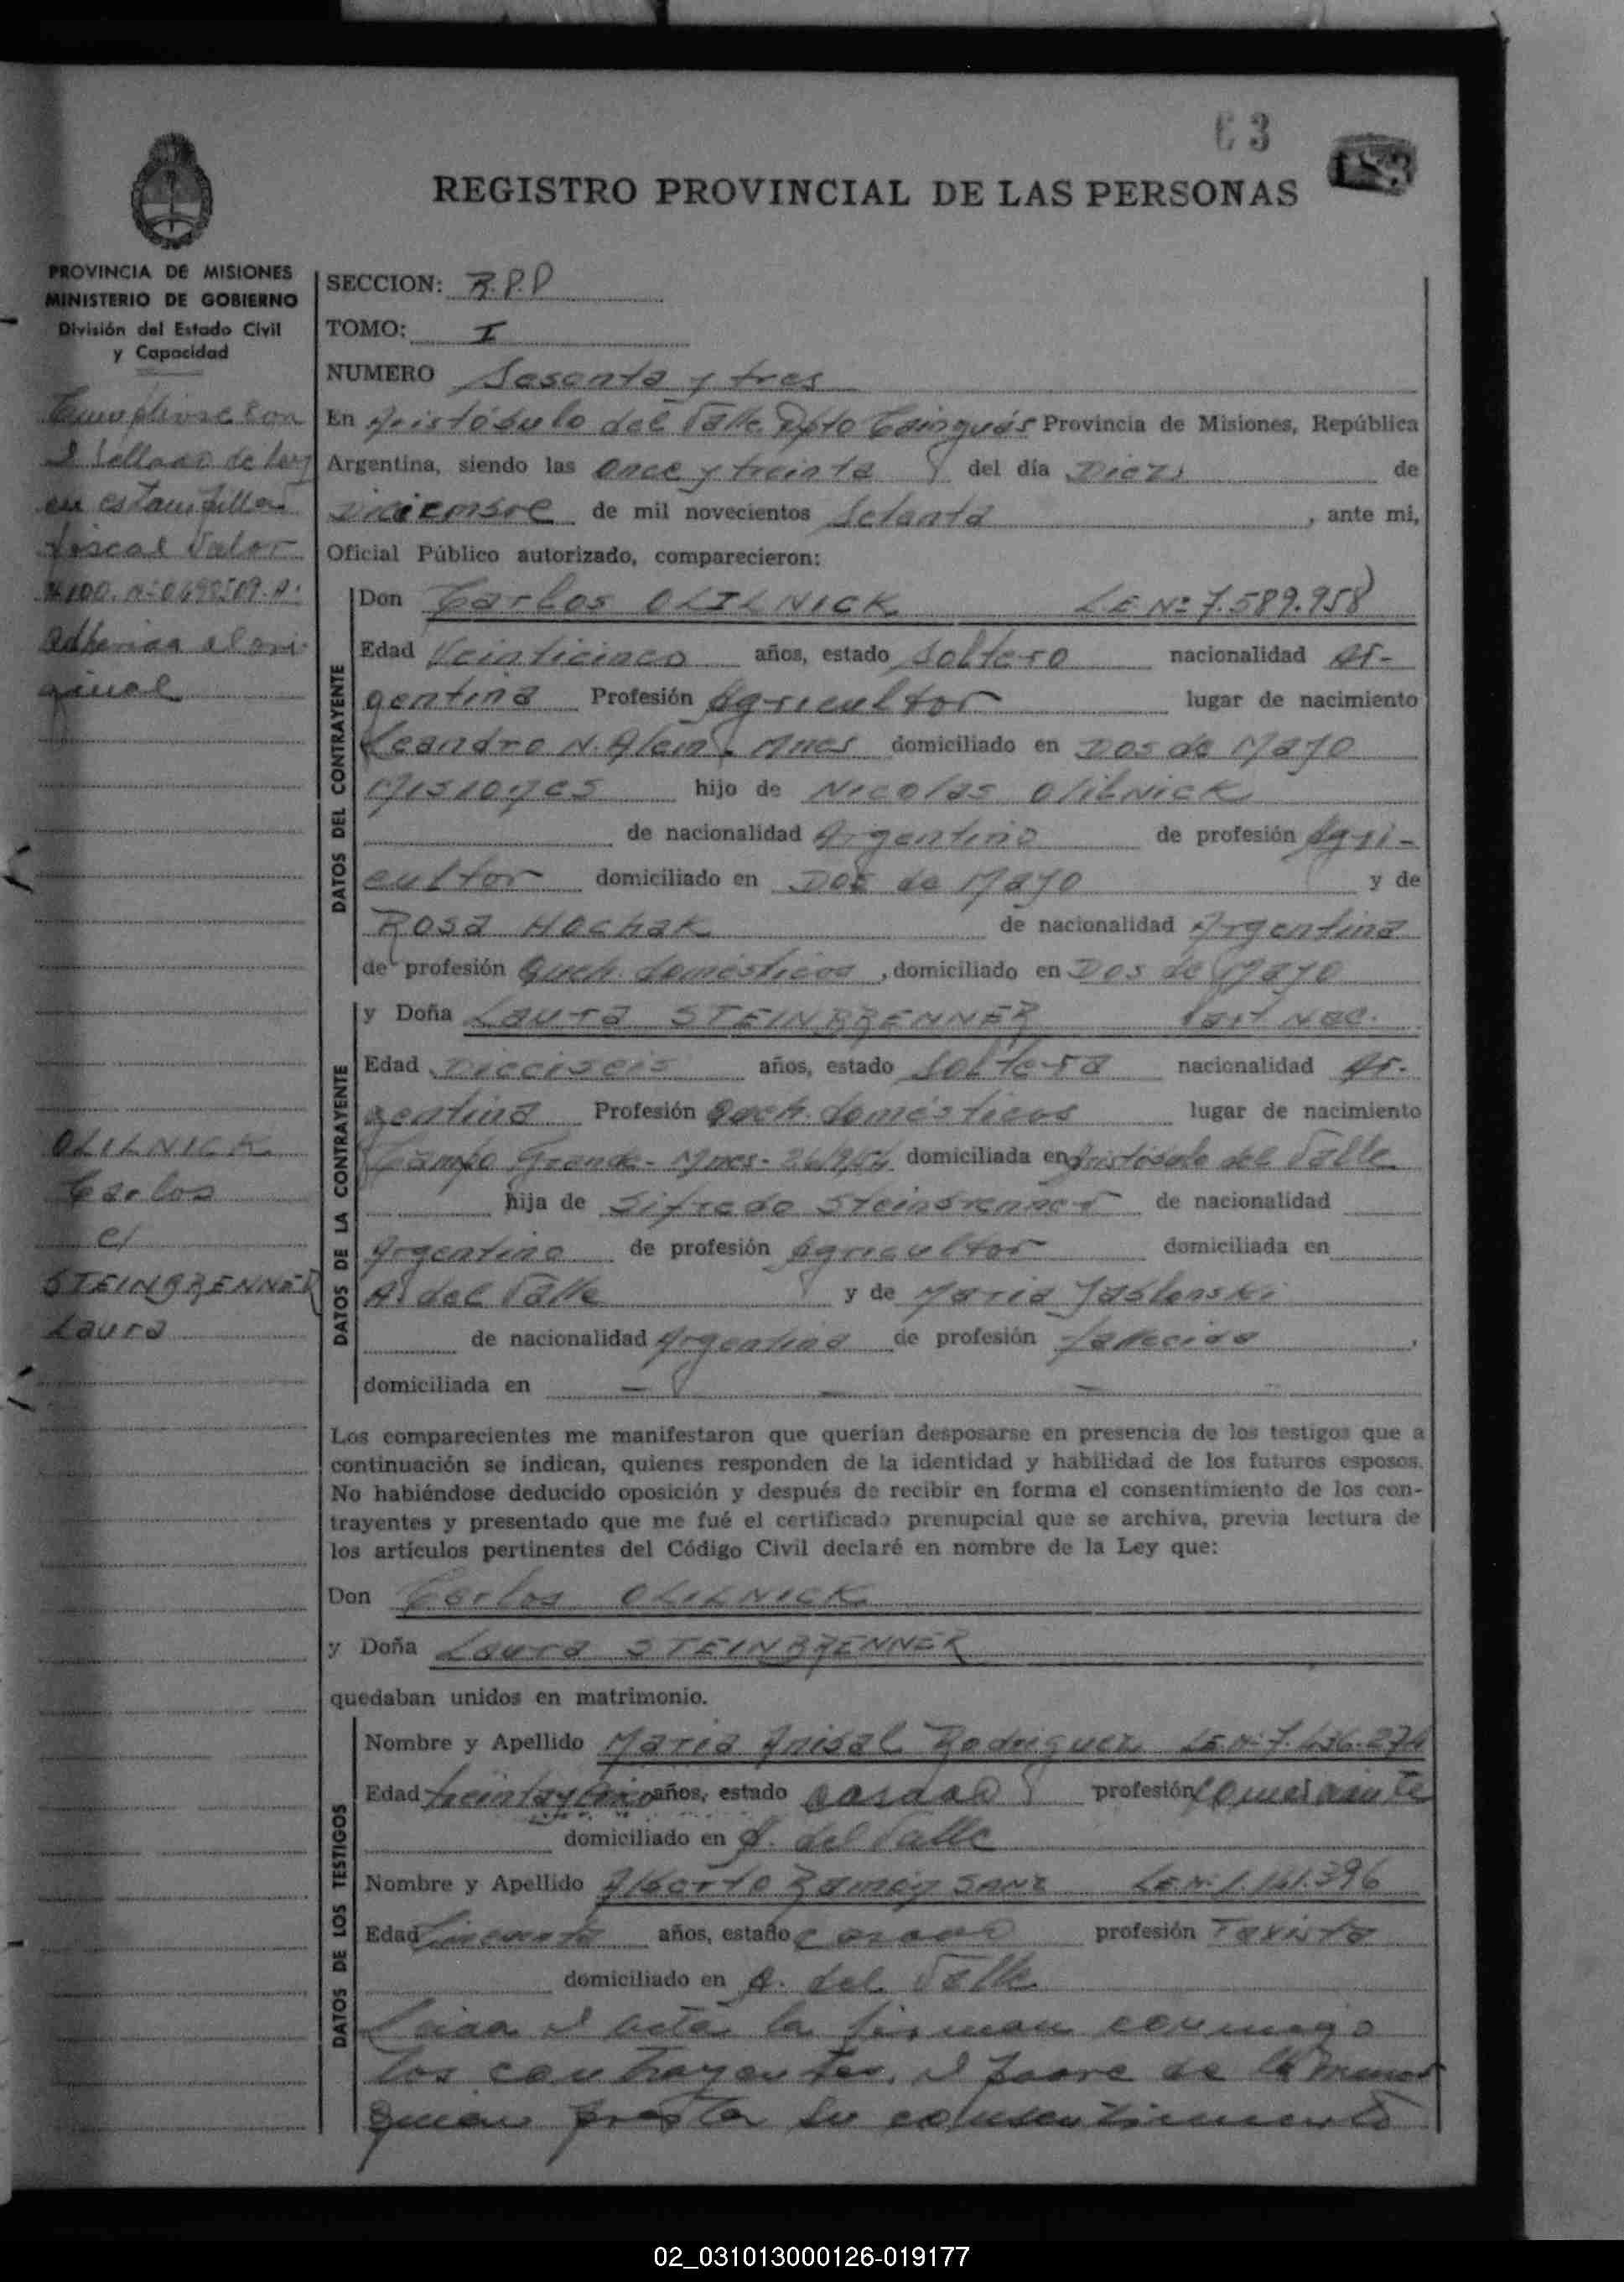 63
REGISTRO PROVINCIAL DE LAS PERSONAS
PROVINCIA DE MISIONES
MINISTERIO DE GOBIERNO
División del Estado Civil
y Capacidad
Cumplióse con
el sellado de ley
en estampilla
fiscal valor
adherida al ori-
ginal
OLILNICK
Carlos
c/
STEINBRENNER
Laura
SECCION: R.P.P
TOMO: I
NUMERO Sesenta y tres
En Aristóbulo del Valle Dpto Cainguás Provincia de Misiones, República
Argentina, siendo las once y treinta del día Diez de
Diciembre de mil novecientos Setenta, ante mi,
Oficial Público autorizado, comparecieron:
DATOS DEL CONTRAYENTE
Don Carlos OLILNICK LE Nº 7.589.958
Edad Veinticinco años, estado Soltero nacionalidad Ar-
gentina Profesión Agricultor lugar de nacimiento
Leandro N. Alem, Mnes domiciliado en Dos de Mayo
Misiones hijo de Nicolas OlilNick
de nacionalidad Argentino de profesión Agri-
cultor domiciliado en Dos de Mayo y de
Rosa Hochak de nacionalidad Argentina
de profesión Queh. domésticos, domiciliado en Dos de Mayo
DATOS DE LA CONTRAYENTE
y Doña Laura STEINBRENNER Part Nac.
Edad Dieciseis años, estado Soltera nacionalidad Ar-
gentina Profesión Queh. domésticos lugar de nacimiento
Campo Grande - Mnes - 26/9/54 domiciliada en Aristóbulo del Valle
hija de Sifredo Steinbrenner de nacionalidad
Argentino de profesión Agricultor domiciliada en
A. del Valle y de Maria Jablonski
de nacionalidad Argentina de profesión fallecida
domiciliada en - - - -
Los comparecientes me manifestaron que querían desposarse en presencia de los testigos que a
continuación se indican, quienes responden de la identidad y habilidad de los futuros esposos.
No habiéndose deducido oposición y después de recibir en forma el consentimiento de los con-
trayentes y presentado que me fué el certificado prenupcial que se archiva, previa lectura de
los artículos pertinentes del Código Civil declaré en nombre de la Ley que:
Don Carlos OLILNICK
y Doña Laura STEINBRENNER
quedaban unidos en matrimonio.
DATOS DE LOS TESTIGOS
Nombre y Apellido Maria Anibal Rodriguez LE Nº 7.436.274
Edad treinta y cinco años, estado casado profesión comerciante
domiciliado en A. del Valle
Nombre y Apellido Alberto Ramón SANZ LE Nº 1.141.396
Edad Cincuenta años, estado casado profesión Taxista
domiciliado en A. del Valle
Leida el acta la firman conmigo
los contrayentes, el padre de la menor
quien presta su consentimiento
02_031013000126-019177